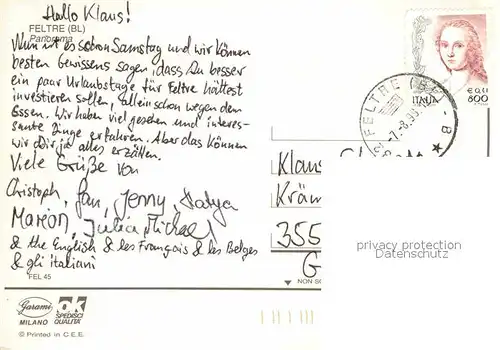 Hallo Klaus!
FELTRE (BL)
Panorama
Nun ist es schon Samstag und wir können
besten Gewissens sagen, dass Du besser
ein paar Urlaubstage für Feltre hättest
investieren sollen, allein schon wegen dem
Essen. Wir haben viel gesehen und interes-
sante Dinge erfahren. Aber das können
wir Dir ja alles erzählen.
Viele Grüße von
Christoph, Jan, Jenny, Katya
Marion, Julia Michael
& the English & les Français & les Belges
& gli italiani
FEL 45
Garami
MILANO
OK
SPEDISCI
QUALITA'
© Printed in C.E.E.
ITALIA
€ 0,41
800
FELTRE
-7.-8.99
Klaus
Kräm
355
G
NON SC
privacy protection
Datenschutz